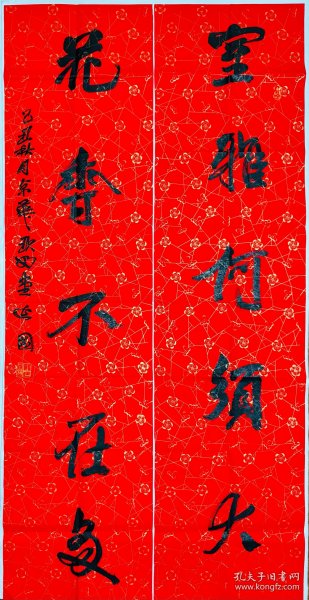 室雅何须大
花香不在多
己丑秋月
孔夫子旧书网
www.kongfz.com